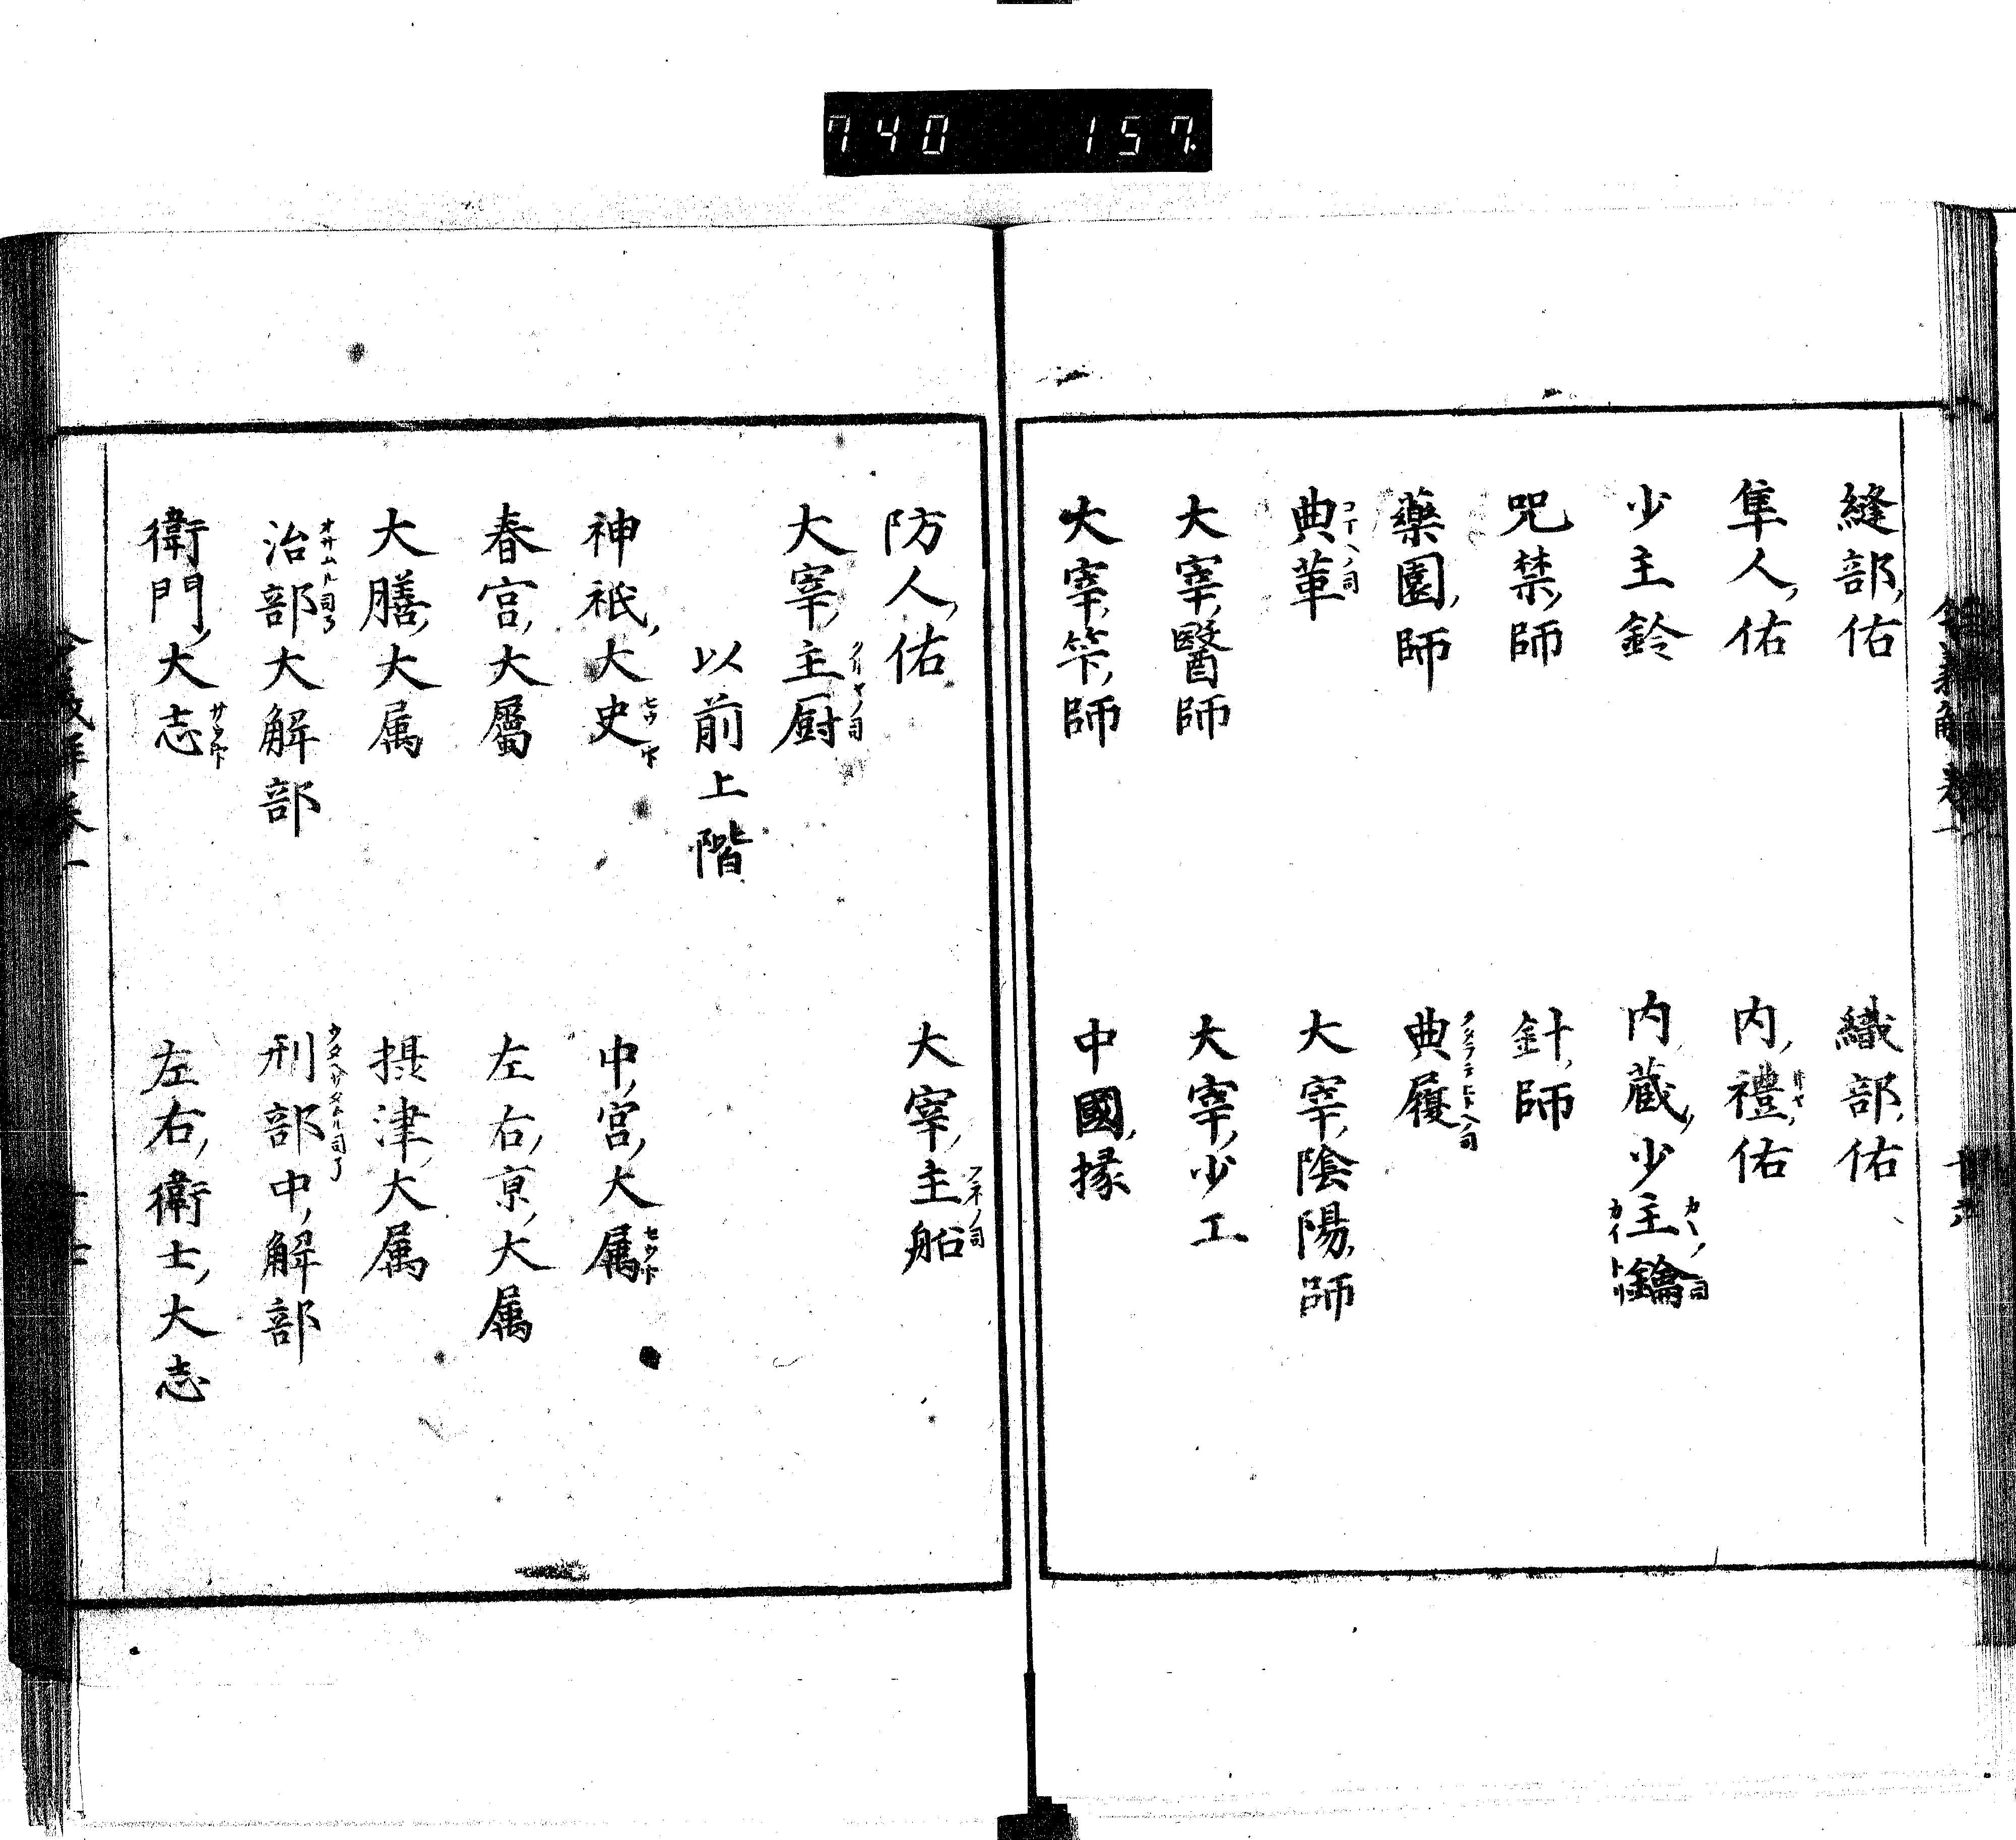 740 157
縫部佑 織部佑
隼人佑 内禮佑
少主鈴 内蔵少主鑰
咒禁師 針師
藥園師 典履
典革 大宰陰陽師
大宰醫師 大宰少工
大宰笇師 中國掾
防人佑 大宰主船
大宰主厨
以前上階
神祇大史 中宮大属
春宮大屬 左右亰大属
大膳大属 摂津大属
治部大解部 刑部中解部
衛門大志 左右衛士大志